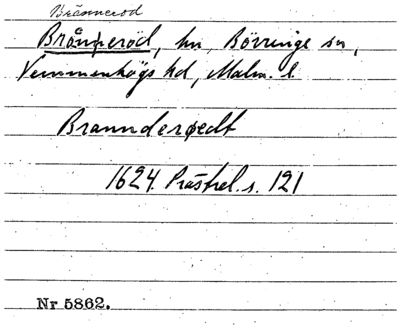 Brännerod
Brånneröd, hn, Börringe sn,
Vemmenhögs hd, Malm. l.
Brannderøedt
1624. Prästrel. s. 121
Nr 5862.